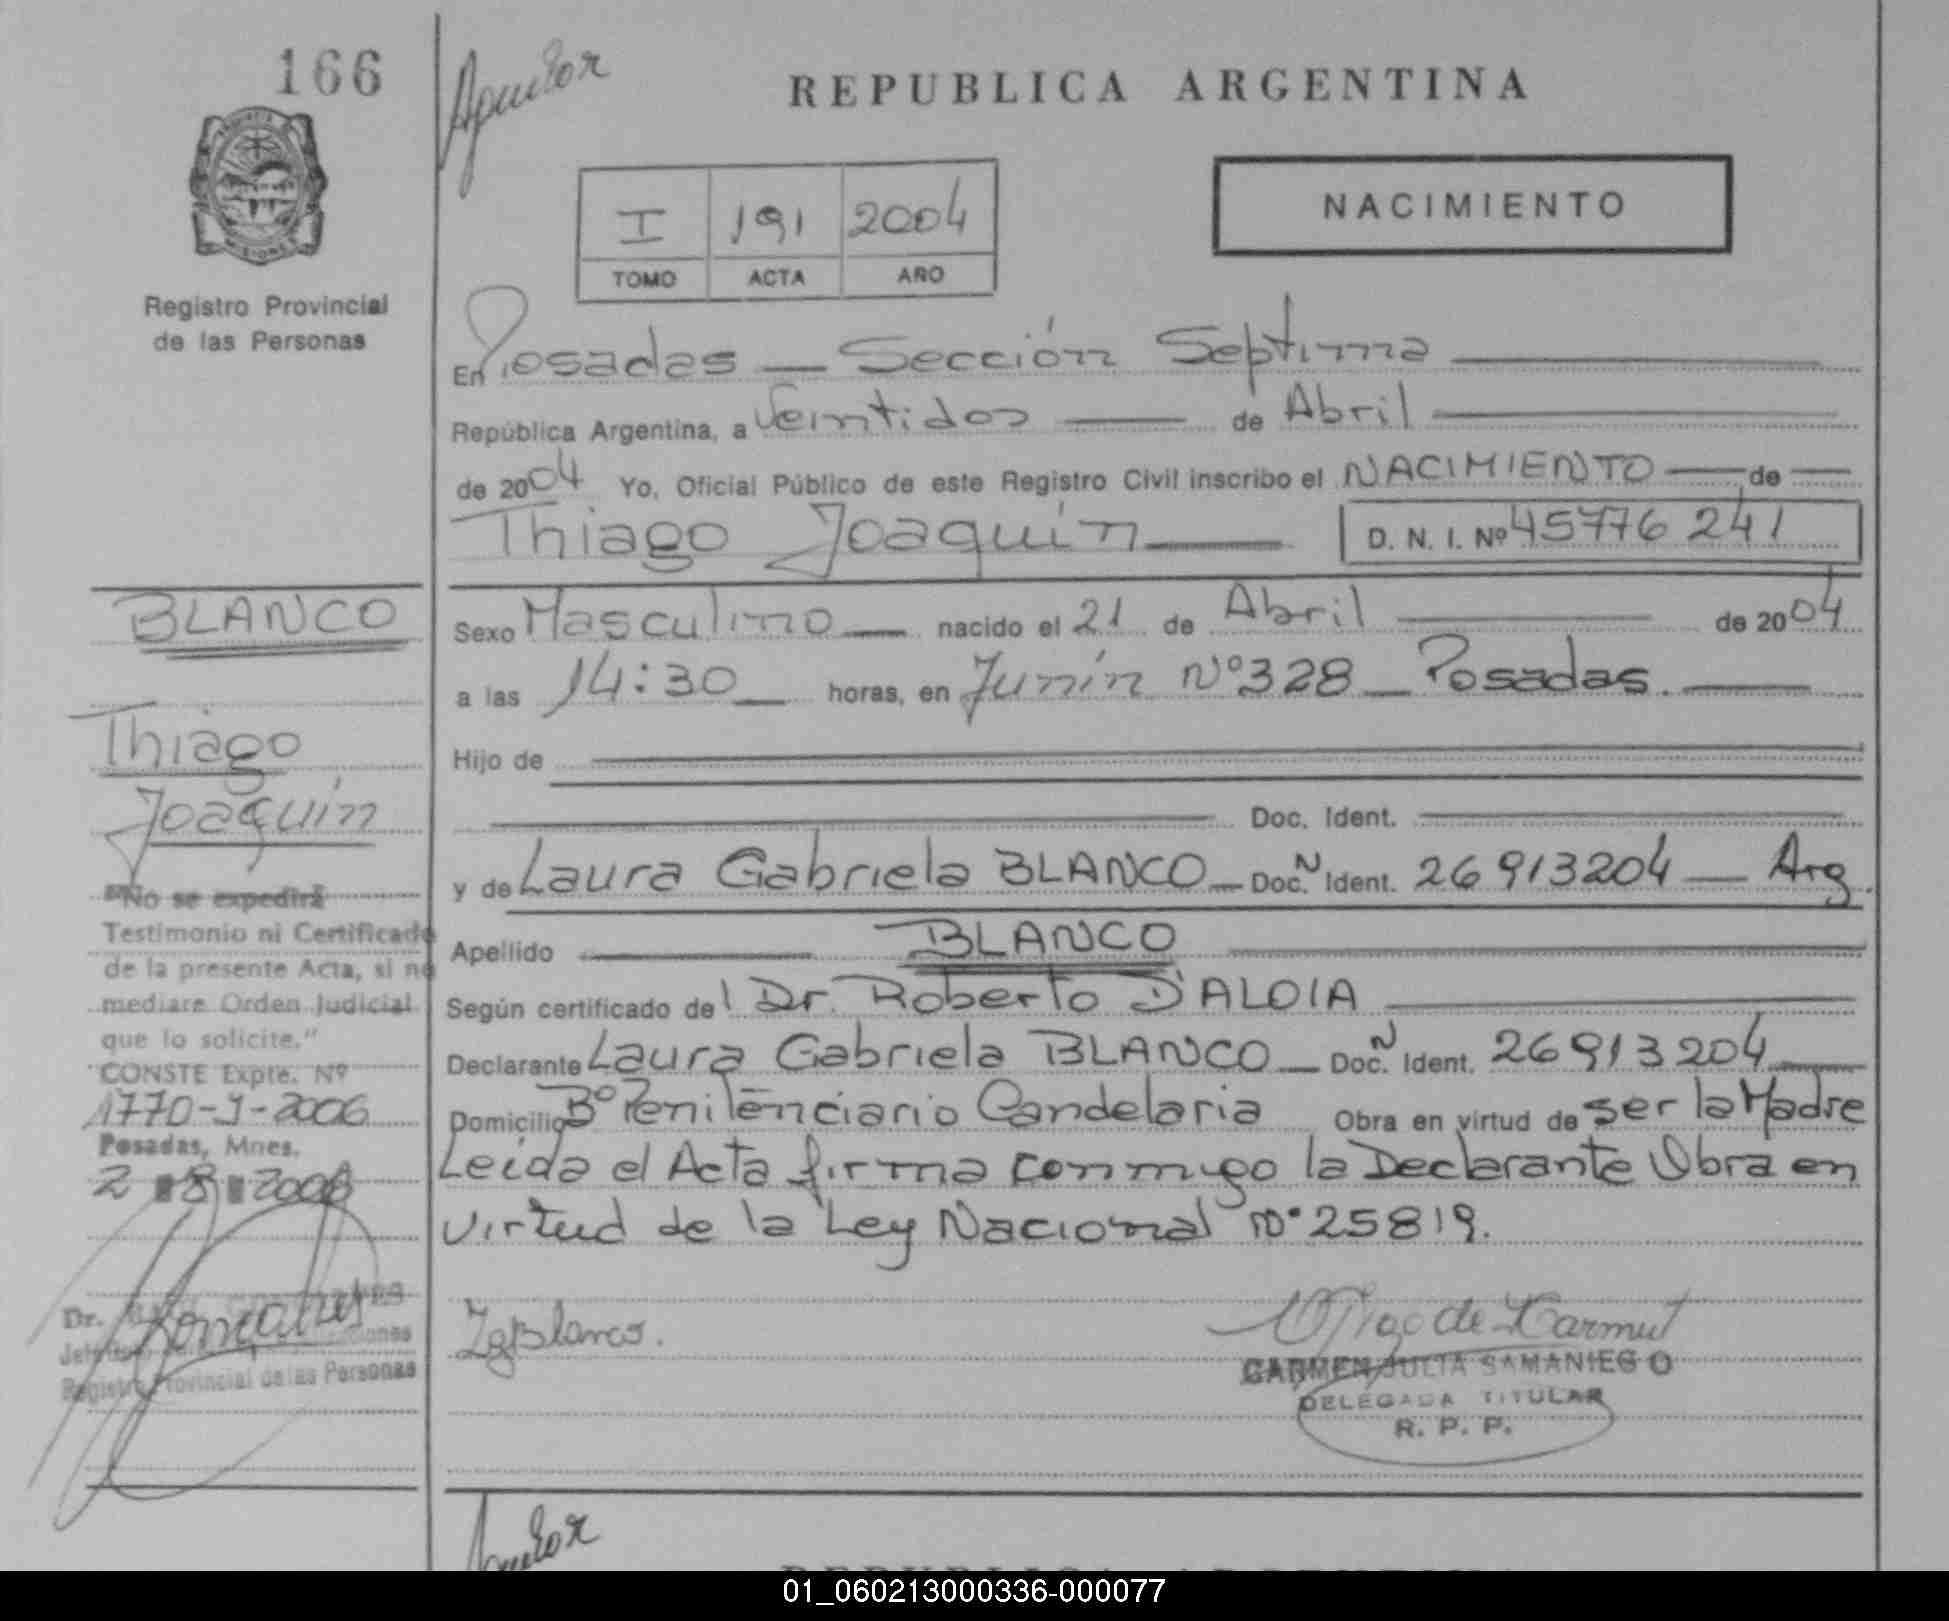 166
Registro Provincial
de las Personas
REPUBLICA ARGENTINA
I 191 2004
TOMO ACTA AÑO
NACIMIENTO
En Posadas — Sección Septima
República Argentina, a Veintidos — de Abril
de 2004 Yo, Oficial Público de este Registro Civil inscribo el NACIMIENTO — de
Thiago Joaquín D. N. I. Nº 45776241
Sexo Masculino nacido el 21 de Abril de 2004
a las 14:30 horas, en Junín Nº 328 — Posadas.
Hijo de
Doc. Ident.
y de Laura Gabriela BLANCO — Doc. N Ident. 26913204 — Arg.
Apellido BLANCO
Según certificado del Dr. Roberto D'ALOIA
Declarante Laura Gabriela BLANCO — Doc. N Ident. 26913204
Domicilio Bº Penitenciario Candelaria Obra en virtud de ser la Madre
Leida el Acta firma conmigo la Declarante Obra en
virtud de la Ley Nacional Nº 25819.
LgBlanco.
CARMEN JULIA SAMANIEGO
DELEGADA TITULAR
R. P. P.
BLANCO
Thiago
Joaquín
"No se expedirá
Testimonio ni Certificado
de la presente Acta, si no
mediare Orden Judicial
que lo solicite."
CONSTE Expte. Nº
1770-J-2006
Posadas, Mnes.
2 8 2006
Dr.
Registro Provincial de las Personas
REPUBLICA ARGENTINA
01_060213000336-000077